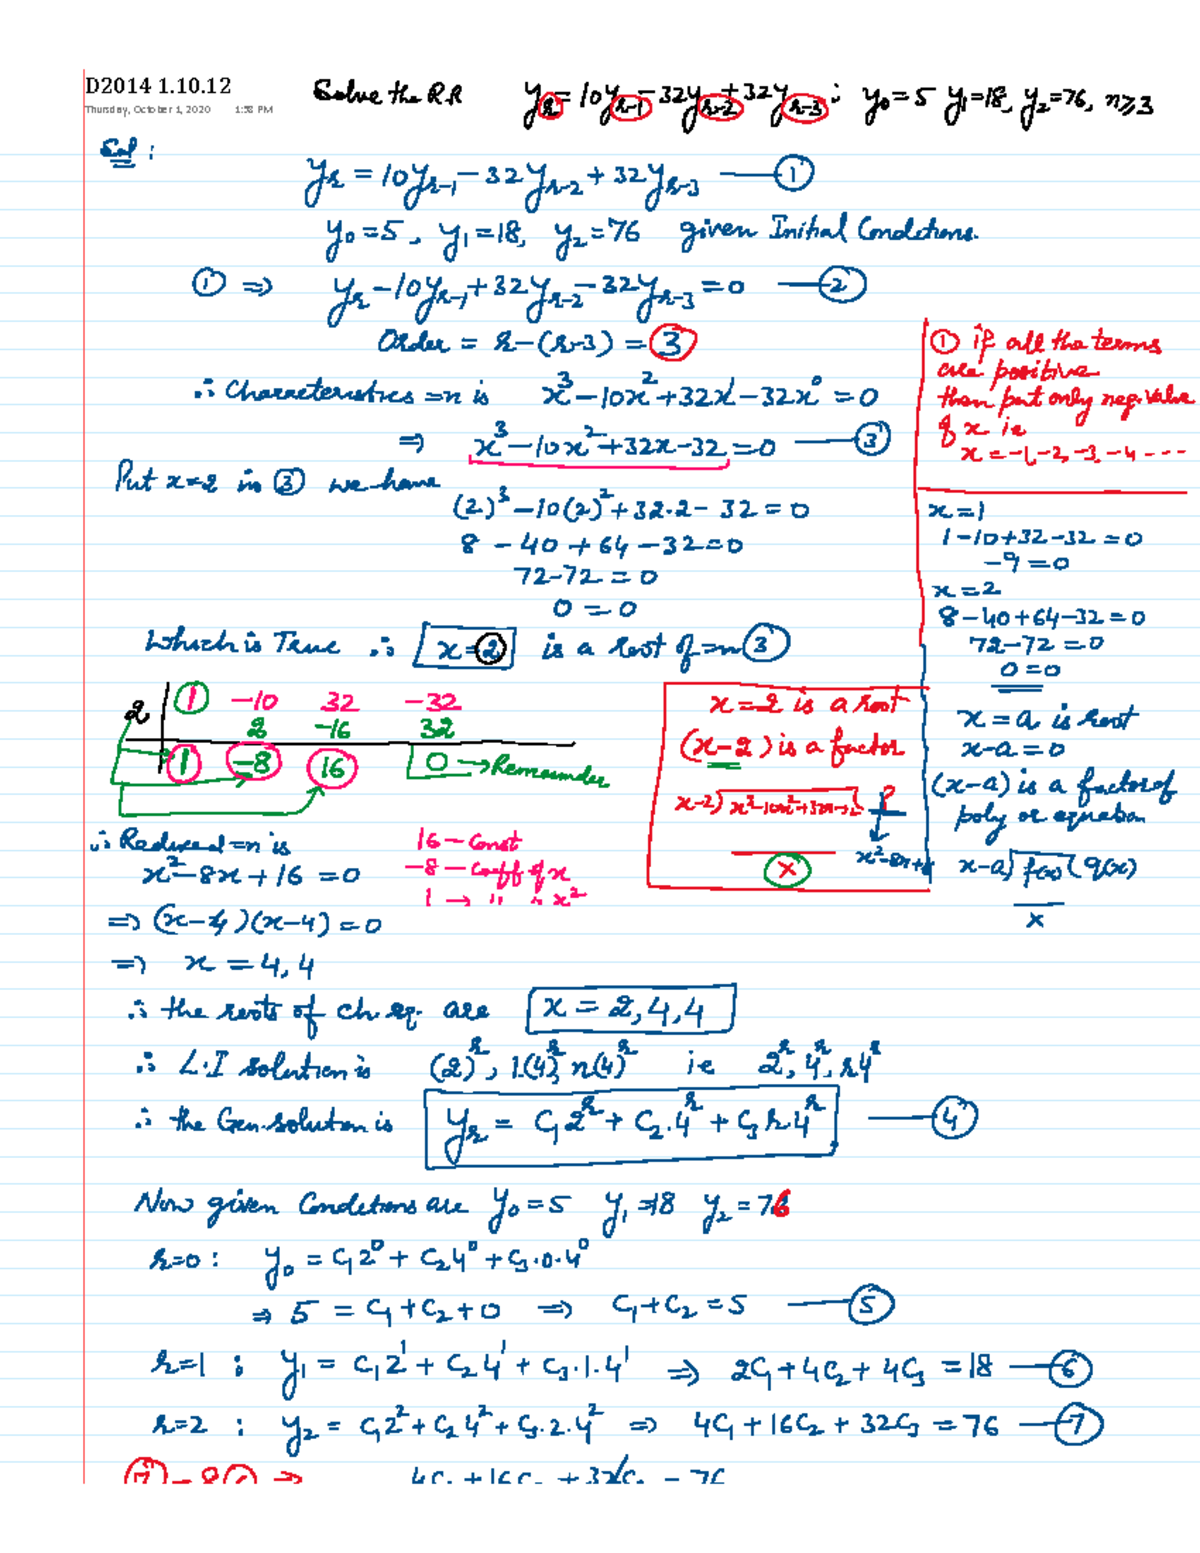 D2014 1.10.12
Thursday, October 1, 2020 1:58 PM
Solve the RR y_r = 10y_{r-1} - 32y_{r-2} + 32y_{r-3} ; y_0 = 5 y_1 = 18, y_2 = 76, n ≥ 3
Sol :
y_r = 10y_{r-1} - 32y_{r-2} + 32y_{r-3} — ①
y_0 = 5, y_1 = 18, y_2 = 76 given Initial Conditions.
① ⇒ y_r - 10y_{r-1} + 32y_{r-2} - 32y_{r-3} = 0 — ②
Order = r - (r-3) = ③
∴ Characteristics =n is x^3 - 10x^2 + 32x^1 - 32x^0 = 0
⇒ x^3 - 10x^2 + 32x - 32 = 0 — ③
Put x=2 in ③ we have
(2)^3 - 10(2)^2 + 32·2 - 32 = 0
8 - 40 + 64 - 32 = 0
72 - 72 = 0
0 = 0
Which is True ∴ x = 2 is a root of =n ③
① if all the terms
are positive
then put only neg. value
of x ie
x = -1, -2, -3, -4 ----
x = 1
1 - 10 + 32 - 32 = 0
-9 = 0
x = 2
8 - 40 + 64 - 32 = 0
72 - 72 = 0
0 = 0
x = a is root
x - a = 0
(x-a) is a factor of
poly or equation
x-a) f(x) ( q(x)
x
2 | 1 -10 32 -32
2 -16 32
1 -8 16 0 → Remainder
x = 2 is a root
(x-2) is a factor
x-2) x^3-10x^2+32x-32 (
x
∴ Reduced =n is
x^2 - 8x + 16 = 0
16 - Const
-8 - coeff of x
1 → " " x^2
⇒ (x-4)(x-4) = 0
⇒ x = 4, 4
∴ the roots of ch. eq. are x = 2, 4, 4
∴ L.I solution is (2)^r, 1.(4)^r, n(4)^r ie 2^r, 4^r, r4^r
∴ the Gen. solution is y_r = C_1 2^r + C_2.4^r + C_3 r.4^r — ④
Now given Conditions are y_0 = 5 y_1 = 18 y_2 = 76
r=0 : y_0 = C_1 2^0 + C_2 4^0 + C_3·0·4^0
⇒ 5 = C_1 + C_2 + 0 ⇒ C_1 + C_2 = 5 — ⑤
r=1 : y_1 = C_1 2^1 + C_2 4^1 + C_3·1·4^1 ⇒ 2C_1 + 4C_2 + 4C_3 = 18 — ⑥
r=2 : y_2 = C_1 2^2 + C_2 4^2 + C_3·2·4^2 ⇒ 4C_1 + 16C_2 + 32C_3 = 76 — ⑦
⑦ - 8⑥ ⇒ 4C_1 + 16C_2 + 32C_3 = 76